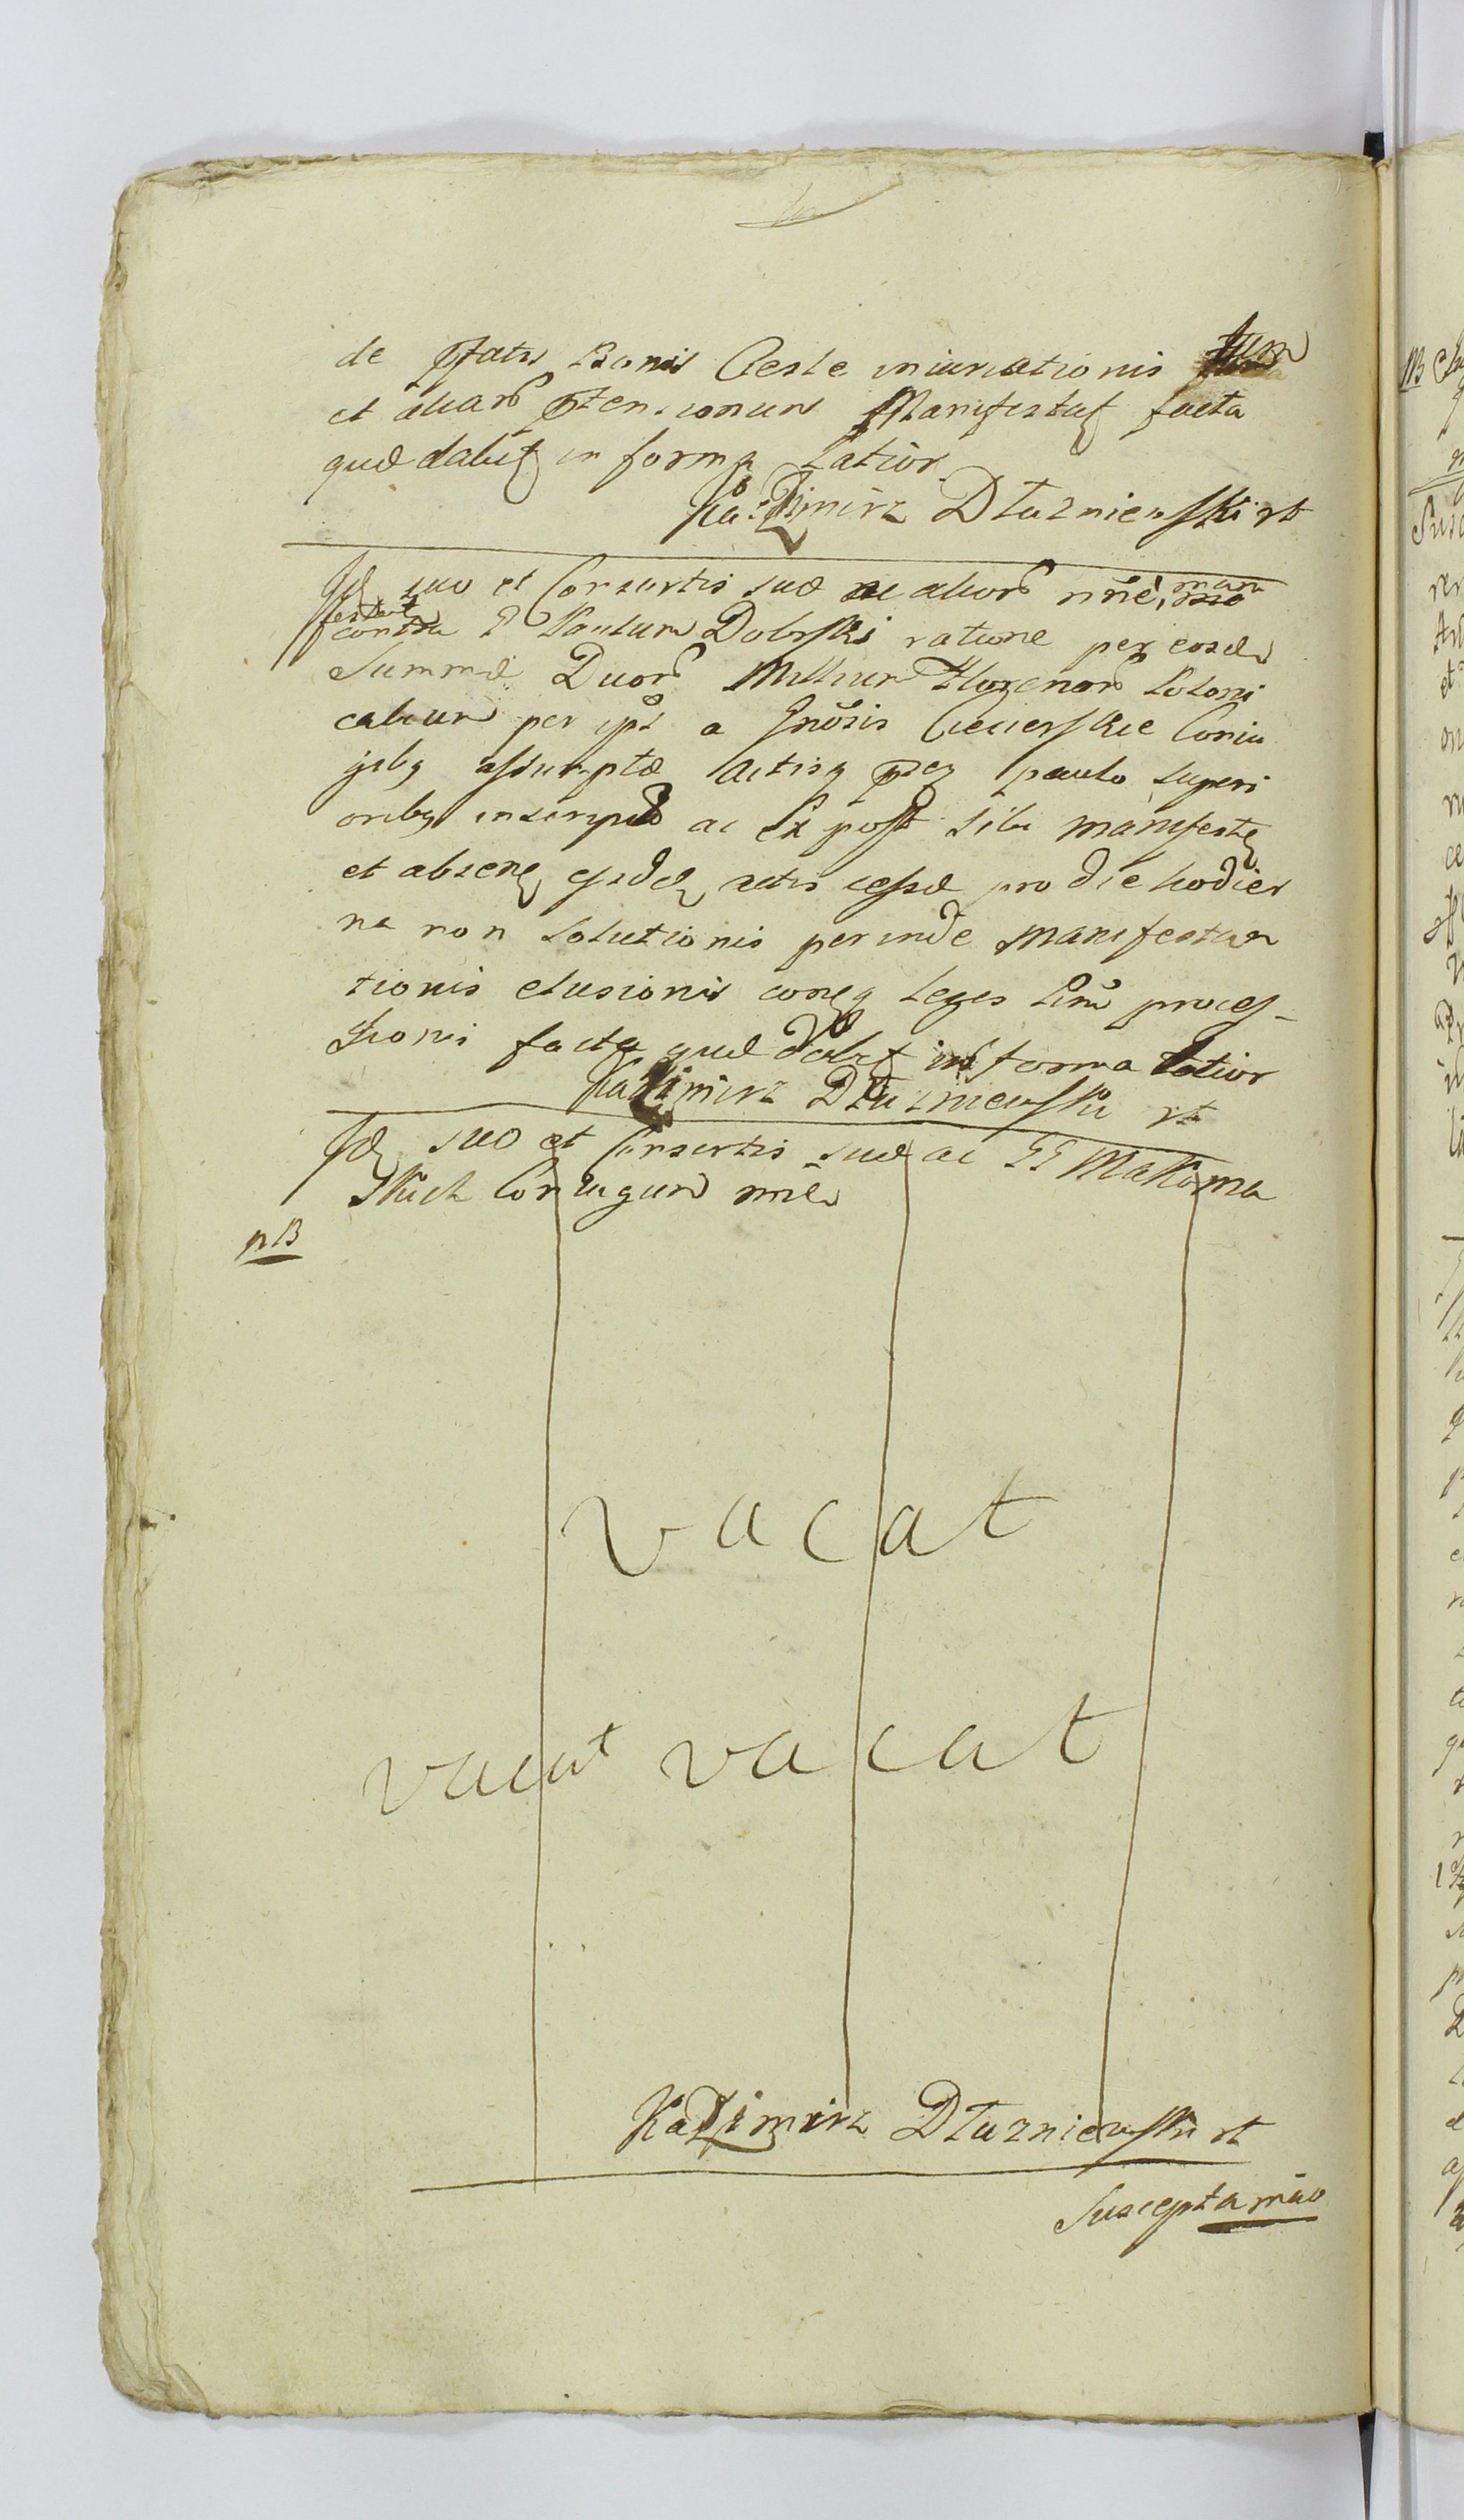 de Pfatis Bonis Cesle iniuriationis tum
et aliar Ptensionum Manifestat facta
quæ dabit in forma Latior
Kazimirz Dłuzniewski rt
Id suo et Consortis suæ ac alior nne, mani
festat contra G Paulum Dobrski ratione per eosd
Summæ Duor Millium Florenor Poloni
calium per ips a Gnosis Ciecierskie Coniu
gibq assumptæ Actisq psq paulo superi
oribq inscript ac Ex post sibi manifestq
et absenq eisdq actis cessæ pro die hodier
na non solutionis perinde manifesta
tionis elusionis conq leges proces-
sionis facta quæ dabit in forma latior
Kazimirz Dłuzniewski rt
Id suo et Consortis suæ ac GG Makoma
skich Coniugum nne
NB
vacat
vacat vacat
Kazimirz Dłuzniewski rt
Susceptamao